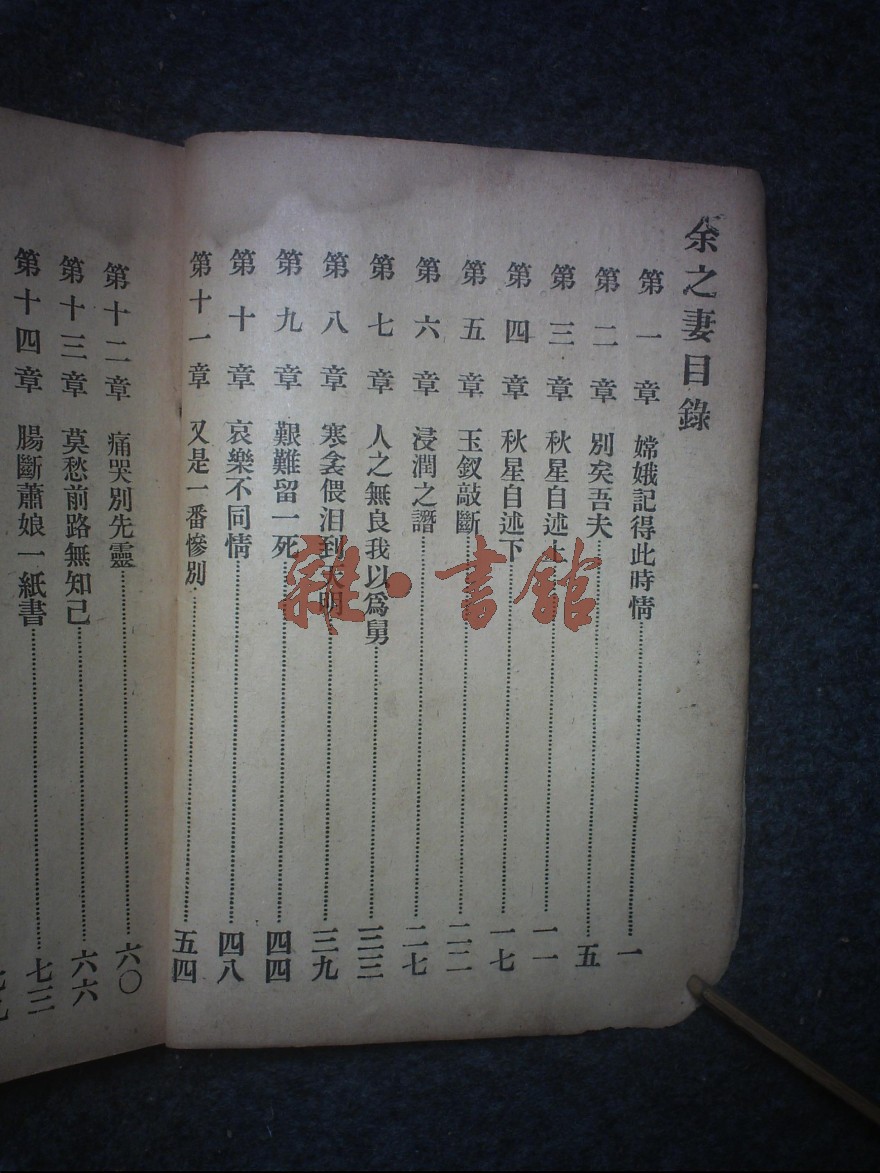 余之妻目錄
第一章 嫦娥記得此時情 一
第二章 別矣吾夫 五
第三章 秋星自述上 一一
第四章 秋星自述下 一七
第五章 玉釵敲斷 二二
第六章 浸潤之譖 二七
第七章 人之無良我以爲舅 三三
第八章 寒衾偎泪到天明 三九
第九章 艱難留一死 四四
第十章 哀樂不同情 四八
第十一章 又是一番慘別 五四
第十二章 痛哭別先靈 六〇
第十三章 莫愁前路無知己 六六
第十四章 腸斷蕭娘一紙書 七三
雜·書館